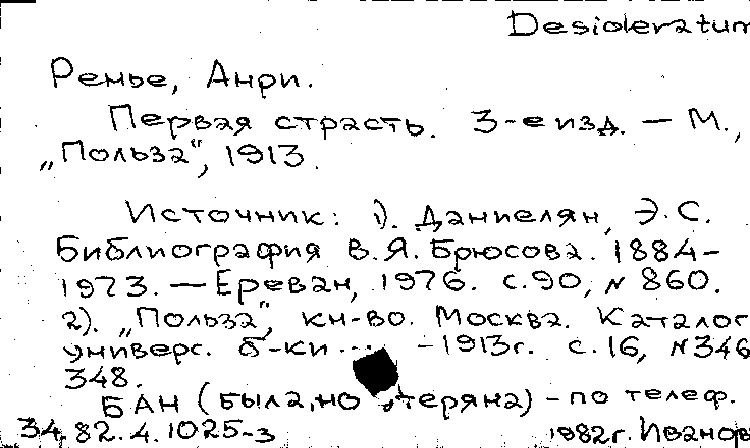 Desideratum
Ренье, Анри.
Первая страсть. 3-е изд. — М.,
„Польза“, 1913.
Источник: 1). Даниелян, Э.С.
Библиография В.Я. Брюсова. 1884-
1973. — Ереван, 1976. с.90, № 860.
2). „Польза“, кн-во. Москва. Каталог
универс. б-ки ... -1913г. с.16, №346
348.
БАН (была, но утеряна) - по телеф.
34.82.4.1025-з 1982г. Иванов